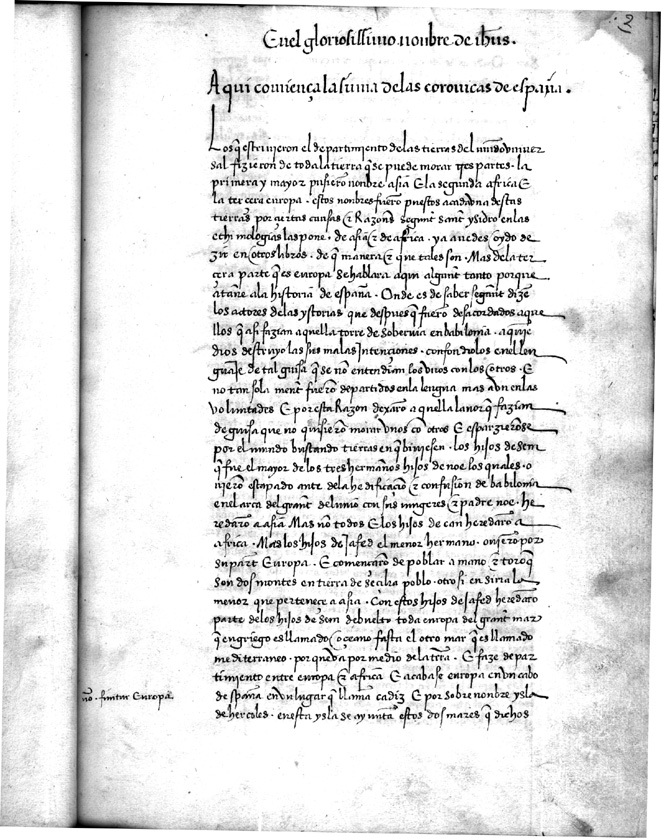 2
En el gloriosissimo nonbre de ihũs.
Aqui comiença la suma delas coronicas de españa.
Los q̃ escriuieron el departimiento delas tierras del mũdo vniuer
sal fizieron de toda la tierra q̃ se puede morar tres partes. la
primera y mayor pusierõ nonbre asia E la segunda africa E
la tercera europa. estos nonbres fuerõ puestos a cada vna destas
tierras por çiertas cabsas & Razones segunt sant ysidro en las
ethimologias las pone. de asia & de africa. ya auedes oydo de
zir en otros libros. de q̃ manera & que tales son. Mas dela ter
cera parte q̃ es europa se hablara aqui algunt tanto porque
atañe ala historia de españa. Onde es de saber segunt dizẽ
los actores delas ystorias que despues q̃ fuerõ desacordados aque
llos q̃ asi fazian aquella torre de soberuia en babilonia. aquie
dios destruyo las sus malas Intençiones. confondiolos en el len
guaje de tal guisa q̃ se nõ entendian los vnos con los otros. E
no tan sola ment fuerõ departidos en la lengua mas avn enlas
voluntades E por esta Razon dexarõ aquella lauor q̃ fazian
de guisa que no quisierõ morar vnos cõ otros E esparzierõse
por el mundo buscando tierras en q̃ biuiesen. los hijos de sem
q̃ fue el mayor de los tres hermanos hijos de noe los quales. o
vierõ escapado ante dela hedificaciõ & confusion de babilonia
en el arca del grant deluuio con sus mugeres & padre noe. he
redarõ a asia Mas nõ todos E los hijos de can heredarõ a
africa. Mas los hijos de Jafed el menor hermano. ouierõ por
su part Europa. E començarõ de poblar a mano & toro q̃
son dos montes en tierra de
menor que pertenece a asia. Con estos hijos de Jafed heredarõ
parte delos hijos de sem debuelto toda europa del grant mar
q̃ en griego es llamado oceano fasta el otro mar q̃ es llamado
mediterraneo. por que va por medio de la trra. E faze depar
timiento entre europa & africa E acabase europa en vn cabo
de españa en vn lugar q̃ llamã cadiz E por sobre nonbre ysla
de hercoles. en esta ysla se ayuntã estos dos mares q̃ dichos
nõ. finitur Europa.